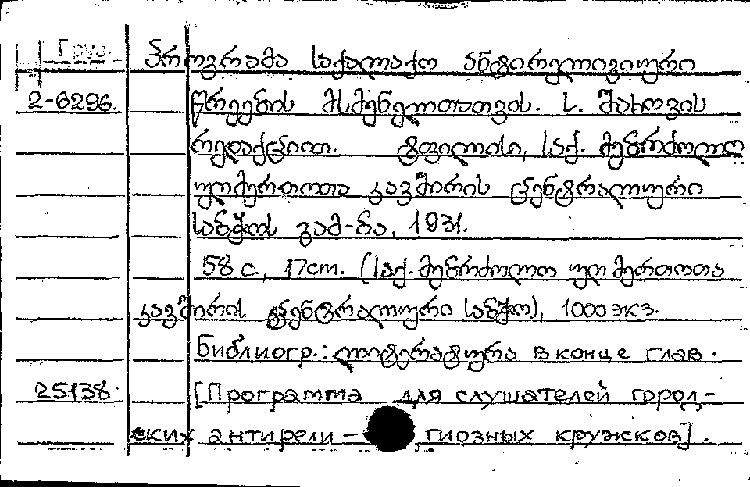 Груз. პროგრამა საქალაქო ანტირელიგიური
2-6296. წრეების მსმენელთათვის. ს. შახოვის
რედაქციით. ტფილისი, საქ. მებრძოლ
უღმერთოთა კავშირის ცენტრალური
საბჭოს გამ-ბა, 1931.
58 с., 17cm. (საქ. მებრძოლთ უღმერთოთა
კავშირის ცენტრალური საბჭო), 1000 экз.
Библиогр.: ლიტერატურა в конце глав.
25138. [Программа для слушателей город-
ских антирели- гиозных кружков].